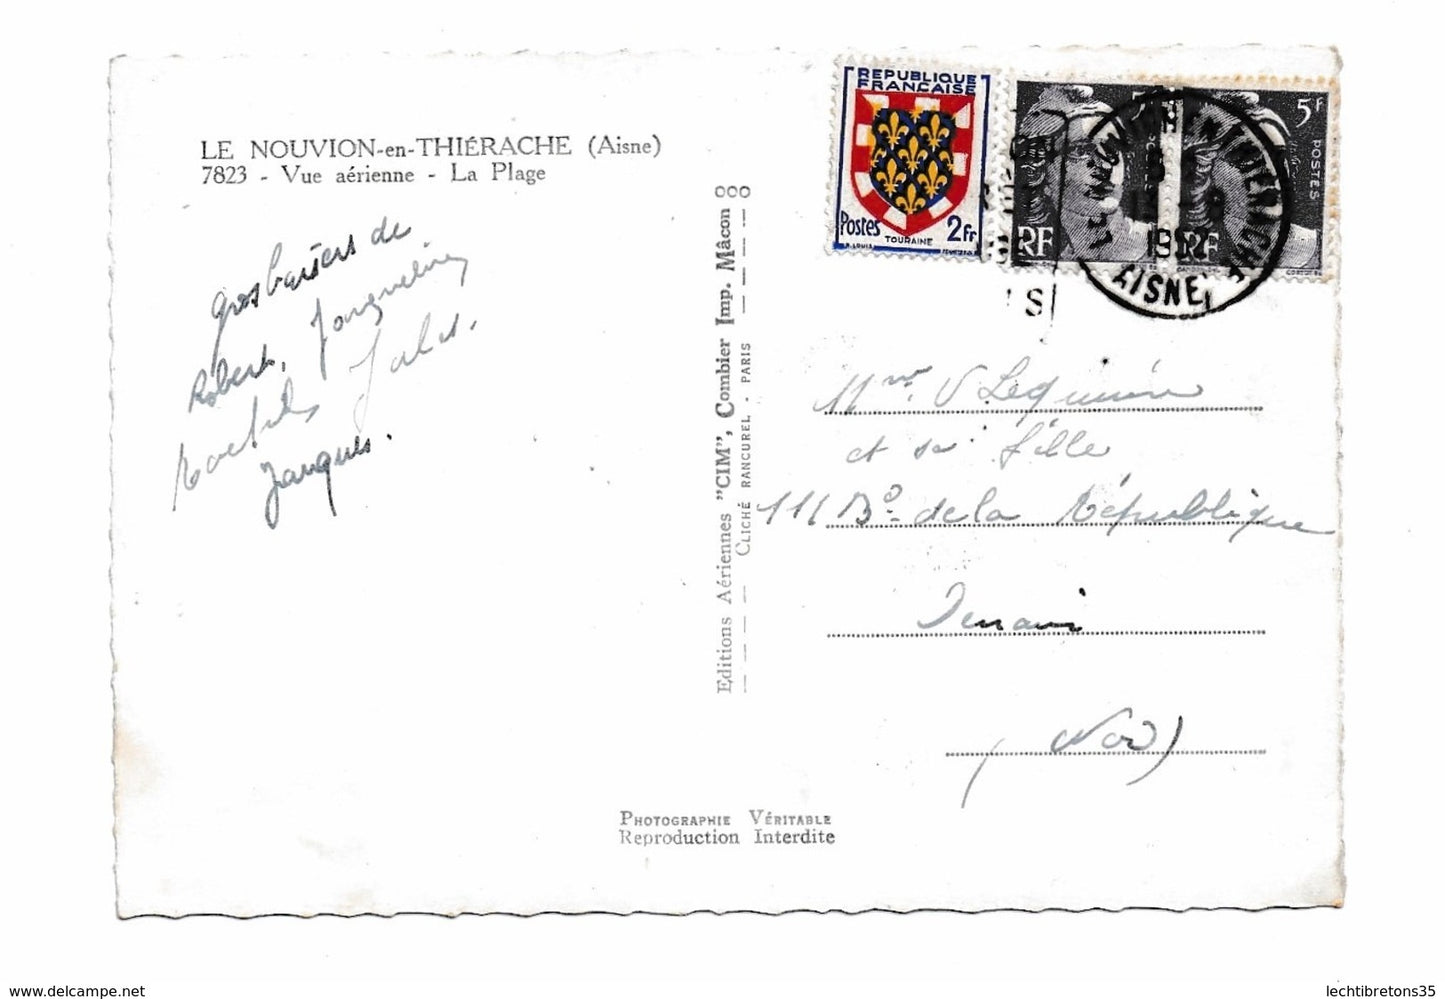 LE NOUVION-en-THIÉRACHE (Aisne)
7823 - Vue aérienne - La Plage
gros baisers de
Robert, Jacqueline
Jacques.
Editions Aériennes "CIM", Combier Imp. Mâcon
CLICHÉ RANCUREL - PARIS
REPUBLIQUE
FRANÇAISE
Postes 2Fr
TOURAINE
5F
POSTES
RF
5F
POSTES
RF
LE NOUVION EN THIERACHE
1952
AISNE
Mme V Lequimme
et sa fille
111 Bd de la République
Denain
(Nord)
PHOTOGRAPHIE VÉRITABLE
Reproduction Interdite
www.delcampe.net
lechtibretons35